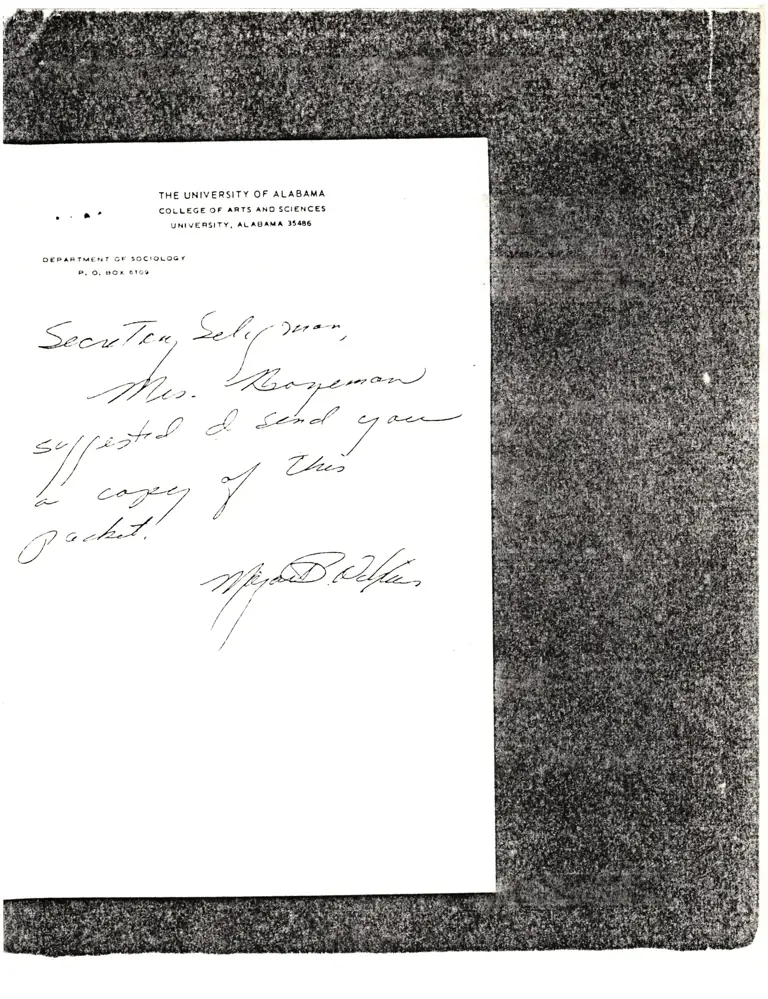 THE UNIVERSITY OF ALABAMA
COLLEGE OF ARTS AND SCIENCES
UNIVERSITY, ALABAMA 35486
DEPARTMENT OF SOCIOLOGY
P. O. BOX 6109
Secretary Seligman,
Mrs. Bozeman
suggested I send you
a copy of this
packet.